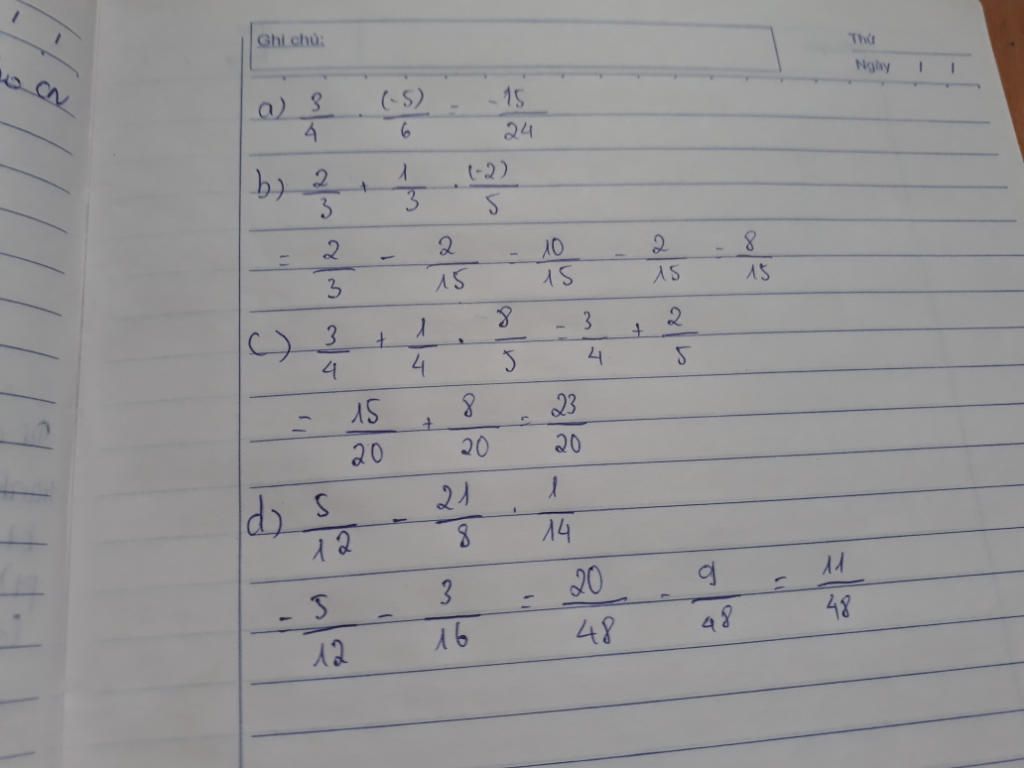 Ghi chú:
Thứ
Ngày / /
a) 3/4 . (-5)/6 = -15/24
b) 2/3 + 1/3 . (-2)/5
= 2/3 - 2/15 = 10/15 - 2/15 = 8/15
c) 3/4 + 1/4 . 8/5 = 3/4 + 2/5
= 15/20 + 8/20 = 23/20
d) 5/12 - 21/8 . 1/14
= 5/12 - 3/16 = 20/48 - 9/48 = 11/48